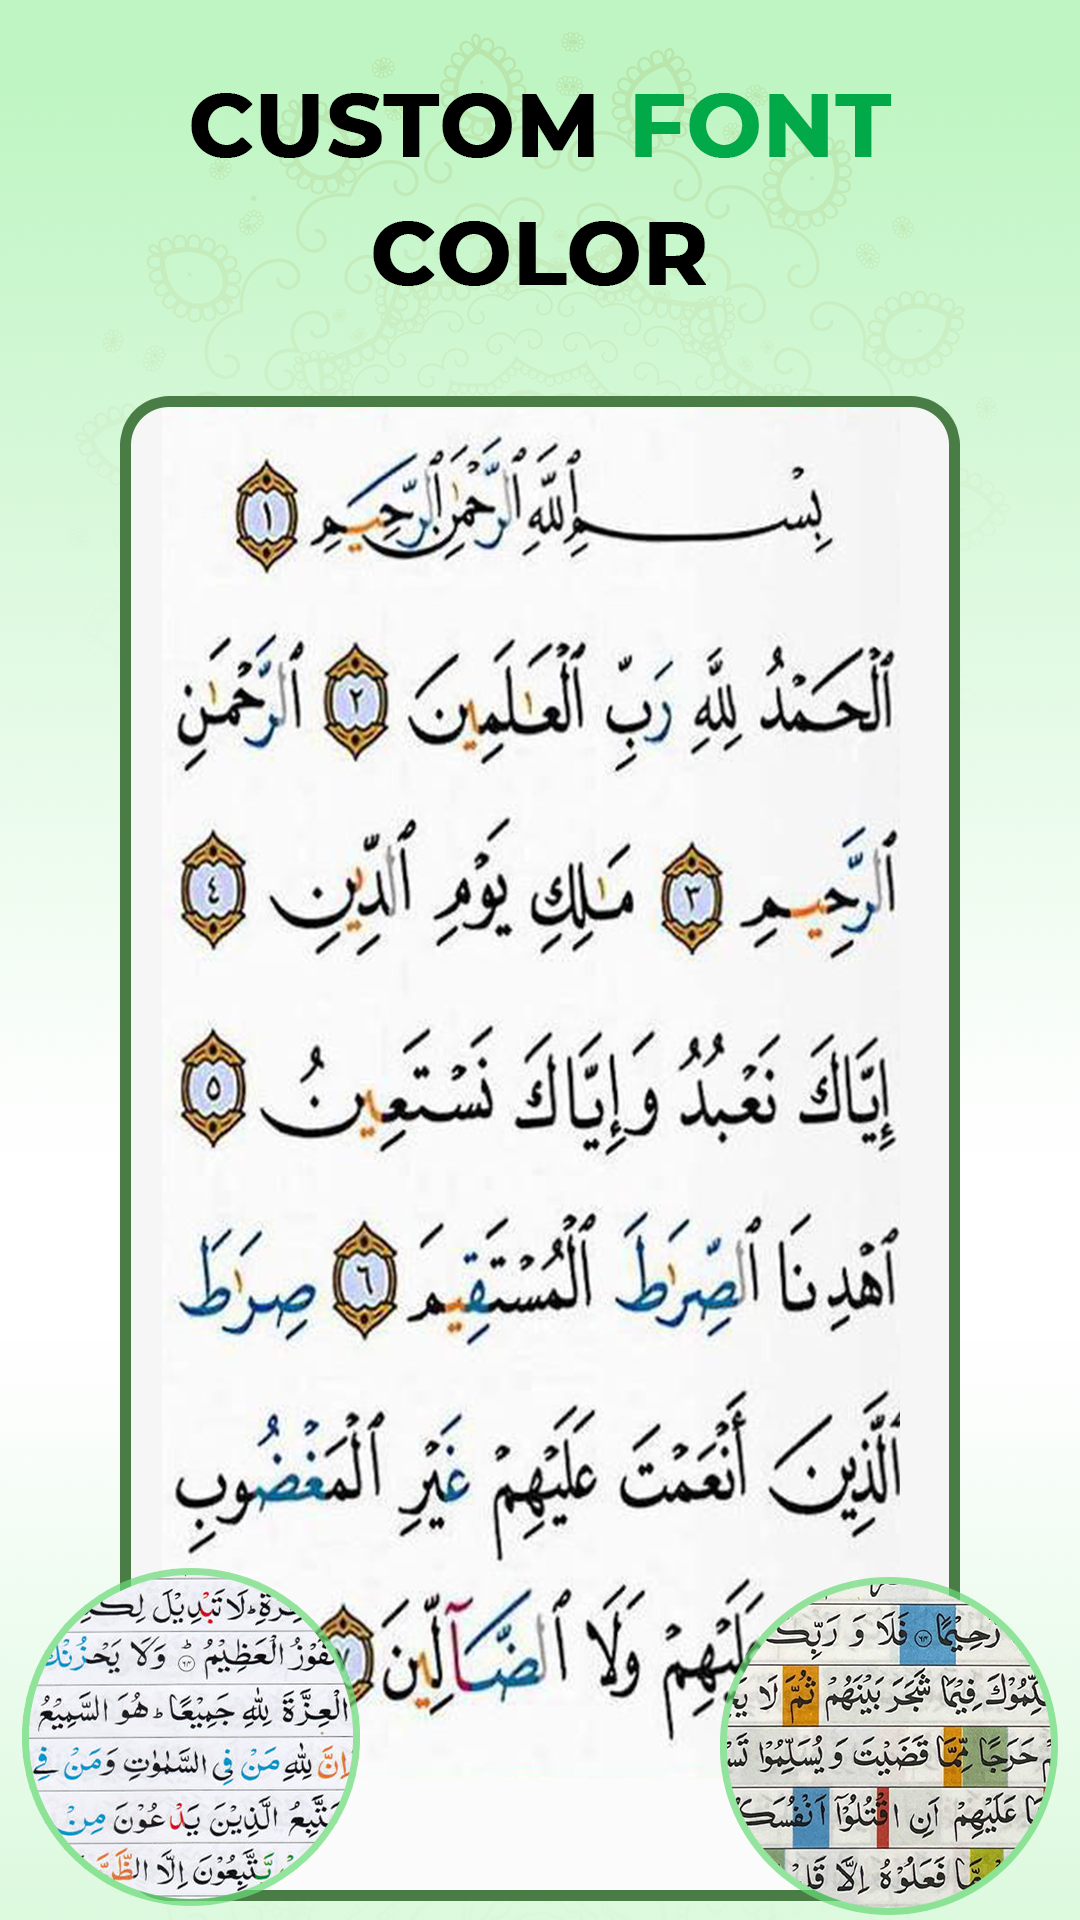 CUSTOM FONT
COLOR
بِسْمِ ٱللَّهِ ٱلرَّحْمَٰنِ ٱلرَّحِيمِ ١
ٱلْحَمْدُ لِلَّهِ رَبِّ ٱلْعَٰلَمِينَ ٢ ٱلرَّحْمَٰنِ
ٱلرَّحِيمِ ٣ مَٰلِكِ يَوْمِ ٱلدِّينِ ٤
إِيَّاكَ نَعْبُدُ وَإِيَّاكَ نَسْتَعِينُ ٥
ٱهْدِنَا ٱلصِّرَٰطَ ٱلْمُسْتَقِيمَ ٦ صِرَٰطَ
ٱلَّذِينَ أَنْعَمْتَ عَلَيْهِمْ غَيْرِ ٱلْمَغْضُوبِ
عَلَيْهِمْ وَلَا ٱلضَّآلِّينَ ٧
لَا تَبْدِيْلَ
الْعَظِيْمُ ۞ وَلَا يَحْزُنْكَ
الْعِزَّةَ لِلّٰهِ جَمِيْعًا هُوَ السَّمِيْعُ
اِنَّ لِلّٰهِ مَنْ فِي السَّمٰوٰتِ وَمَنْ فِي
يَتَّبِعُ الَّذِيْنَ يَدْعُوْنَ مِنْ
يَّتَّبِعُوْنَ اِلَّا
رَحِيْمًا ۞ فَلَا وَ رَبِّكَ
فِيْمَا شَجَرَ بَيْنَهُمْ ثُمَّ لَا
حَرَجًا مِّمَّا قَضَيْتَ وَ يُسَلِّمُوْا
عَلَيْهِمْ اَنِ اقْتُلُوْٓا اَنْفُسَكُ
مَّا فَعَلُوْهُ اِلَّا